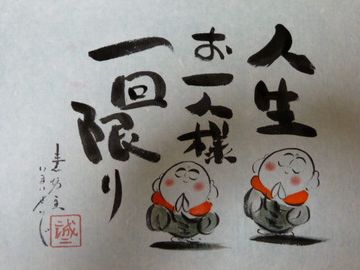 人生
お一人様
一回限り
誠二